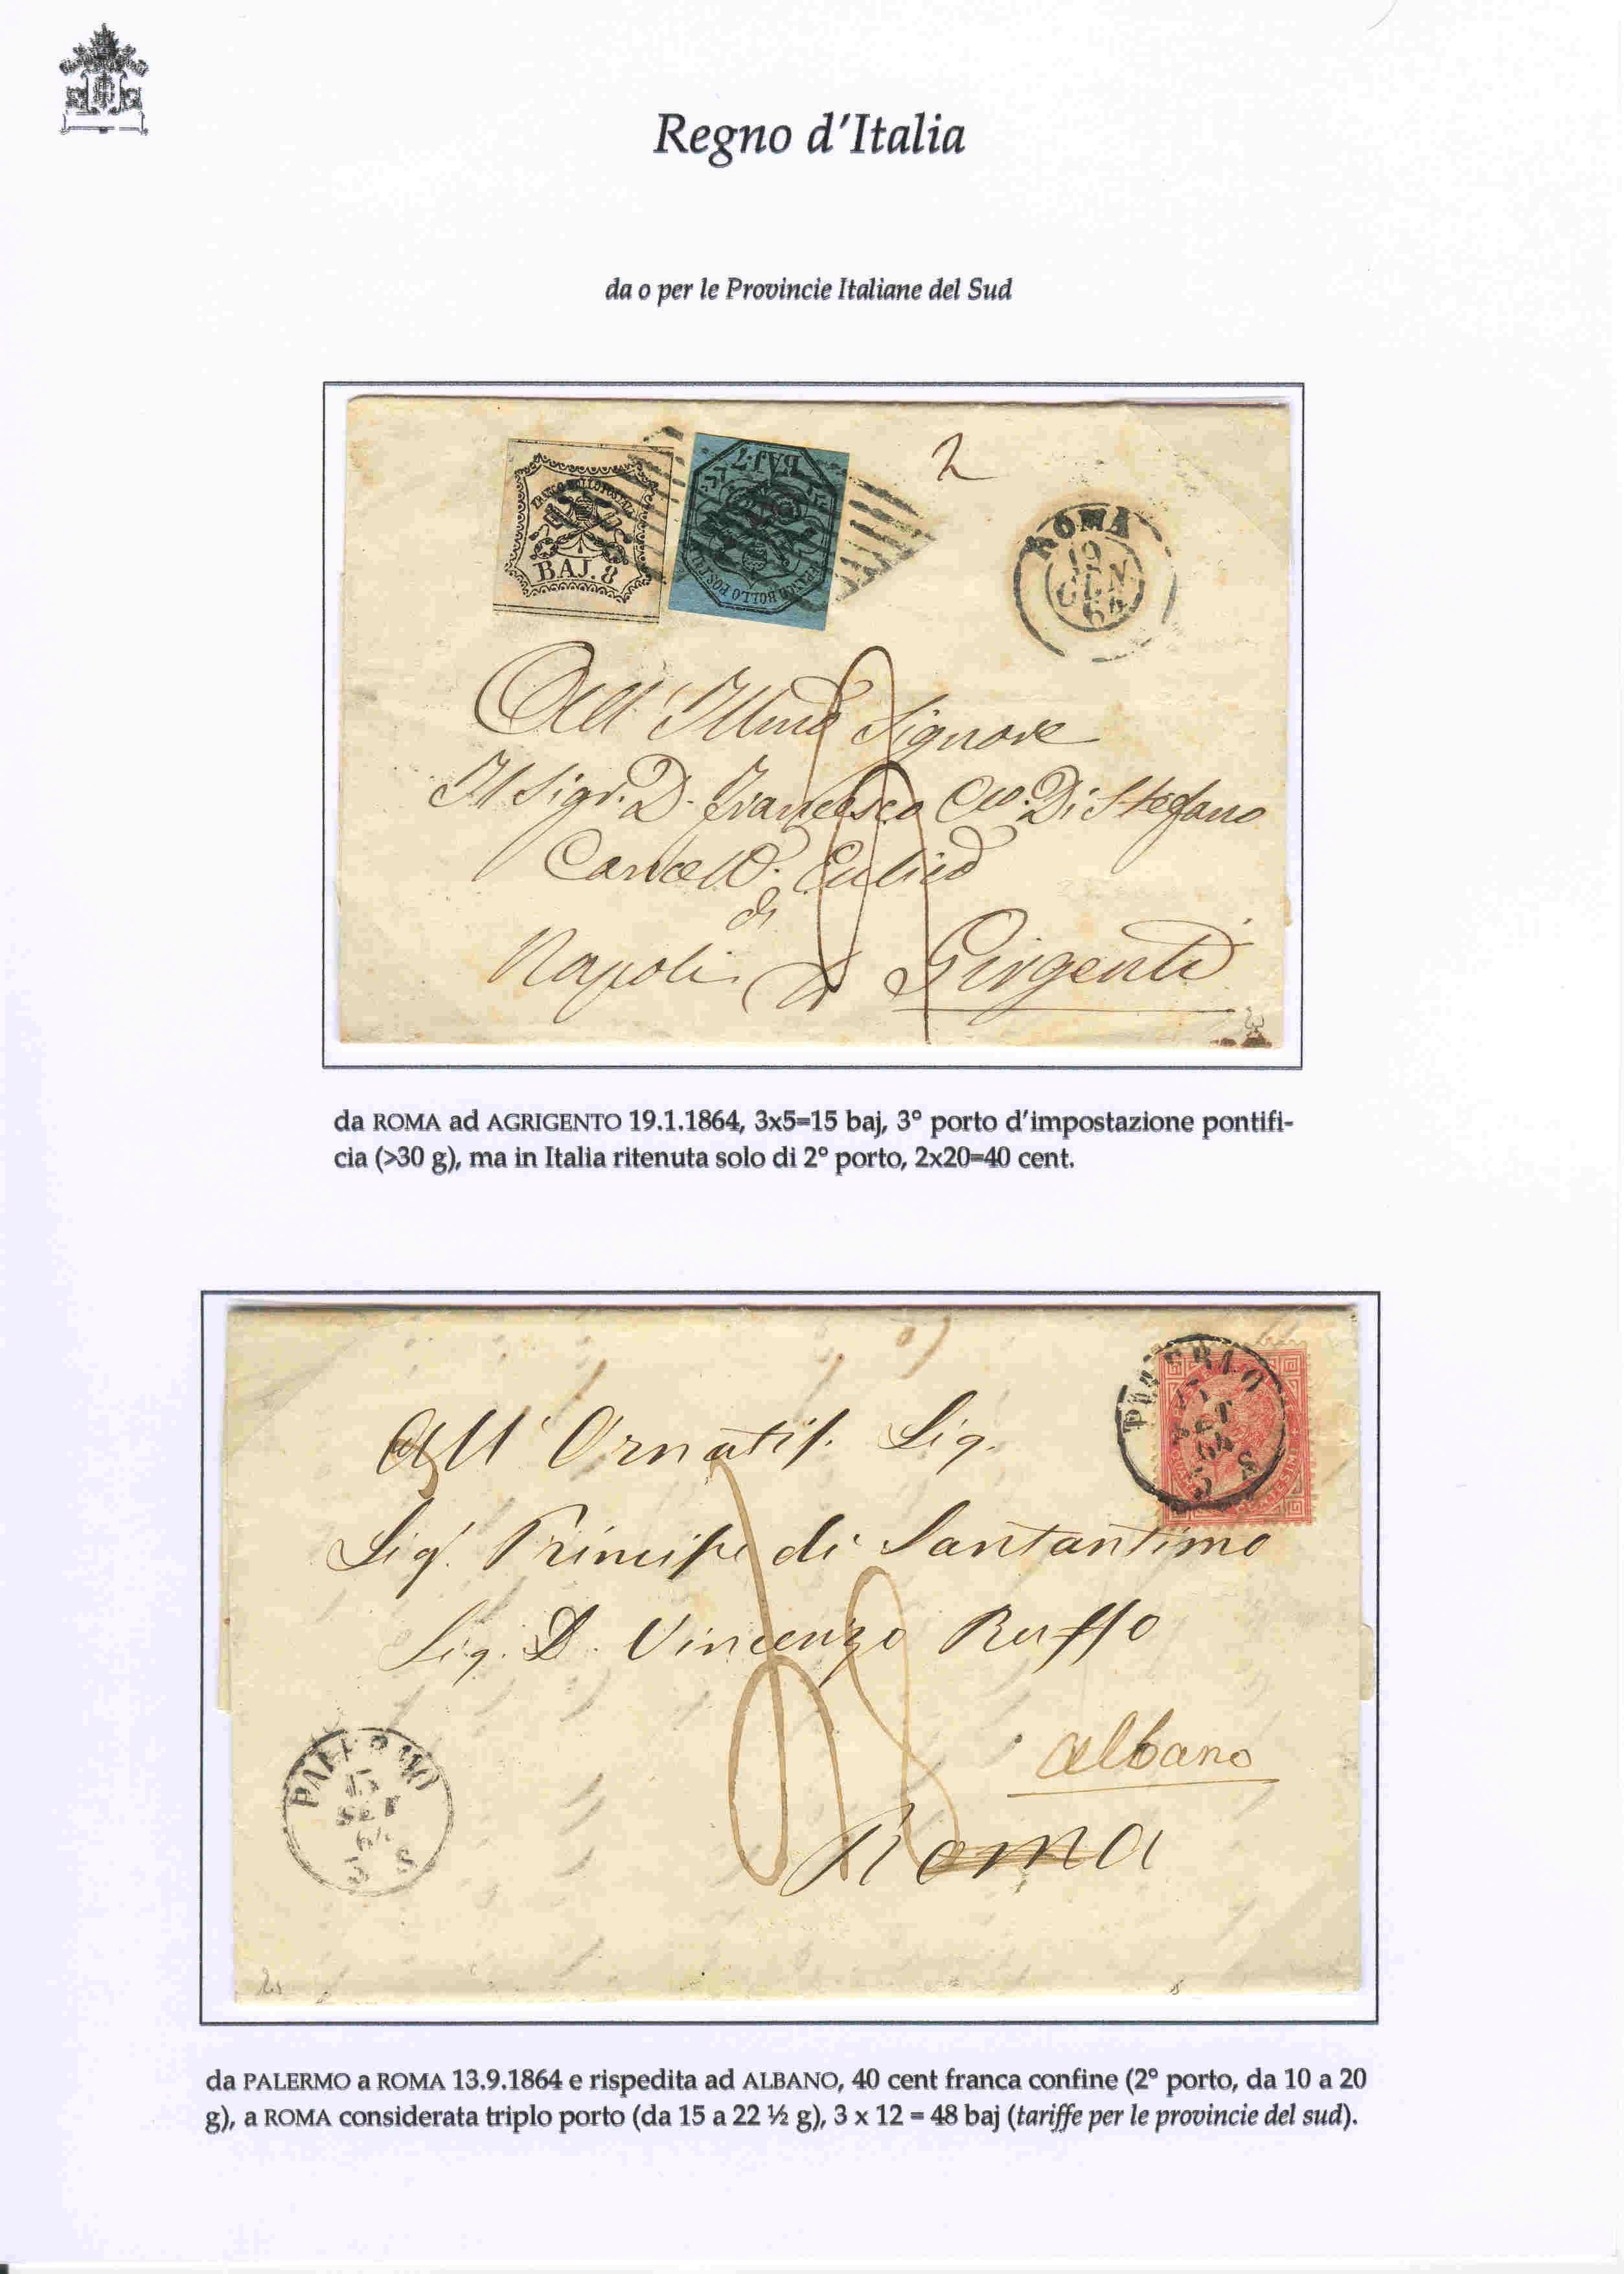 Regno d'Italia
da o per le Provincie Italiane del Sud
2
FRANCO BOLLO POSTALE
BAJ. 8
BAJ. 7
FRANCO BOLLO POSTALE
ROMA
19
GEN
64
All' Illmo Signore
Il Sigr. D. Francesco Di Stefano
di
Napoli Girgenti
da ROMA ad AGRIGENTO 19.1.1864, 3x5=15 baj, 3° porto d'impostazione pontifi-
cia (>30 g), ma in Italia ritenuta solo di 2° porto, 2x20=40 cent.
PALERMO
13
SET
64
5 S
All' Ornatis. Sig.
Sig. Principe di Santantimo
Sig. D. Vincenzo Ruffo
albano
Roma
PALERMO
13
SET
64
5 S
da PALERMO a ROMA 13.9.1864 e rispedita ad ALBANO, 40 cent franca confine (2° porto, da 10 a 20
g), a ROMA considerata triplo porto (da 15 a 22 ½ g), 3 x 12 = 48 baj (tariffe per le provincie del sud).